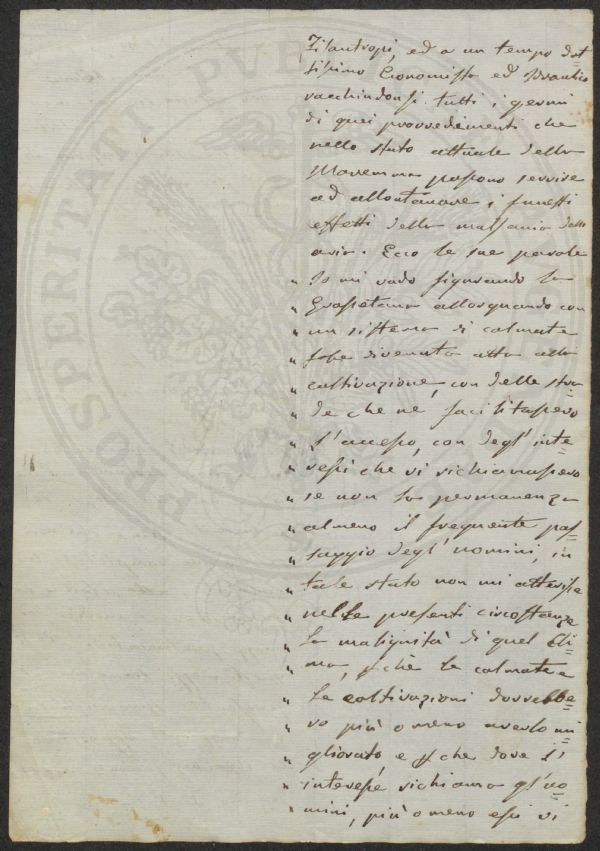 Filantropi, ed a un tempo dot=
tissimo Economista ed Idraulico
racchindonsi tutti i germi
di quei provvedimenti che
nello stato attuale della
Maremma possono servire
ad allontanare i funesti
effetti della malsania dell
aria. Ecco le sue parole
" Io mi vado figurando la
" Grossetana allorquando con
" un sistema di colmate
" fosse divenuta atta alla
" coltivazione, con delle stra
" de che ne facilitassero
" l'accesso, con degl'inte=
" ressi che vi richiamassero
" se non la permanenza
" almeno il frequente pas=
" saggio degl'uomini, in
" tale stato non mi atterrisce
" nelle presenti circostanze
" la malignità di quel Cli=
" ma, pchè le colmate e
" le coltivazioni dovrebbe=
" ro più o meno averlo mi=
" gliorato, e pchè dove l'
" interesse richiama gl'uo=
" mini, più o meno essi vi
PROSPERITATI PUBLICAE